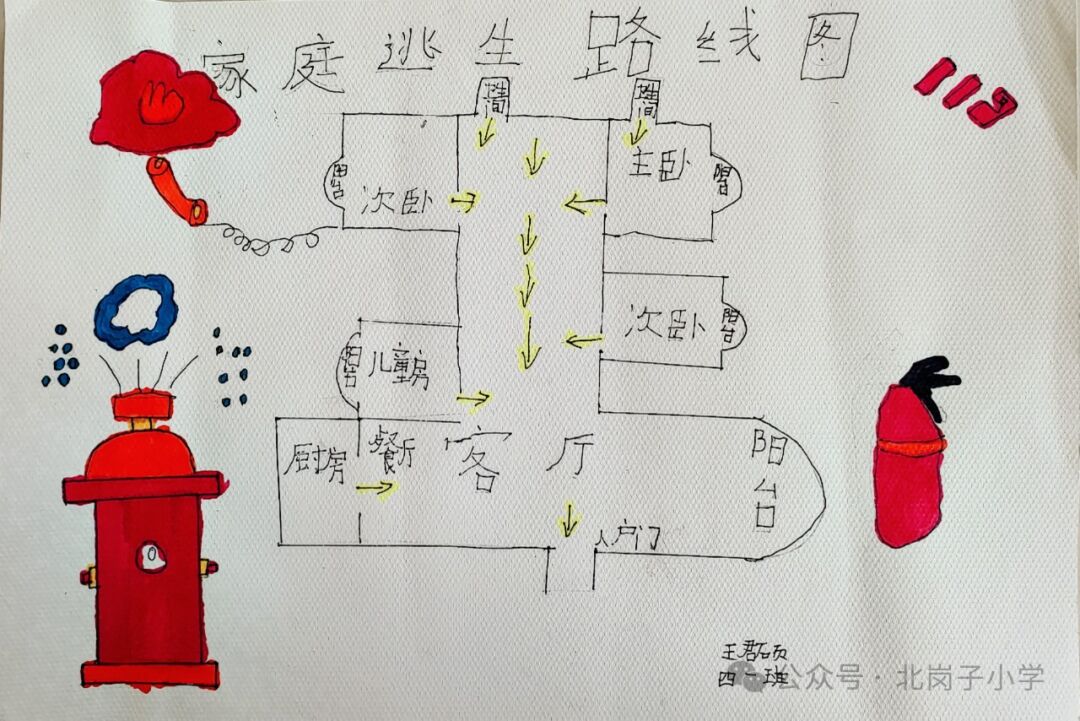 家庭逃生路线图
119
主卧
阳台
次卧
阳台
次卧
阳台
儿童房
阳台
厨房
餐厅
客厅
阳台
入户门
王君硕
四一班
公众号·北岗子小学